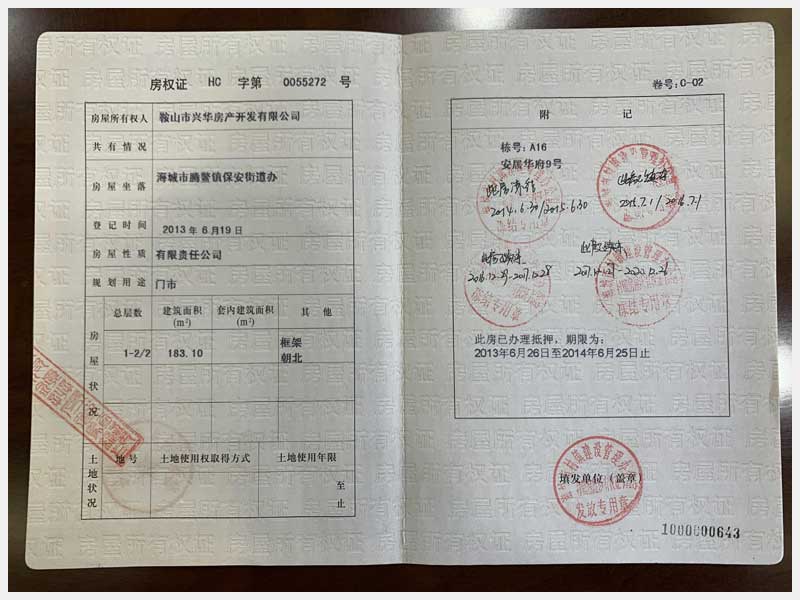 房权证 HC 字第 0055272 号
房屋所有权人 鞍山市兴华房产开发有限公司
共有情况
房屋坐落 海城市腾鳌镇保安街道办
登记时间 2013年6月19日
房屋性质 有限责任公司
规划用途 门市
房屋状况
总层数 建筑面积(m²) 套内建筑面积(m²) 其他
1-2/2 183.10 框架
朝北
土地状况
地号 土地使用权取得方式 土地使用年限
至
止
卷号:C-02
附 记
栋号:A16
安居华府9号
2014.6.30/2015.6.30
此房已办理抵押,期限为:
2013年6月26日至2014年6月25日止
填发单位(盖章)
发放专用章
1000000643